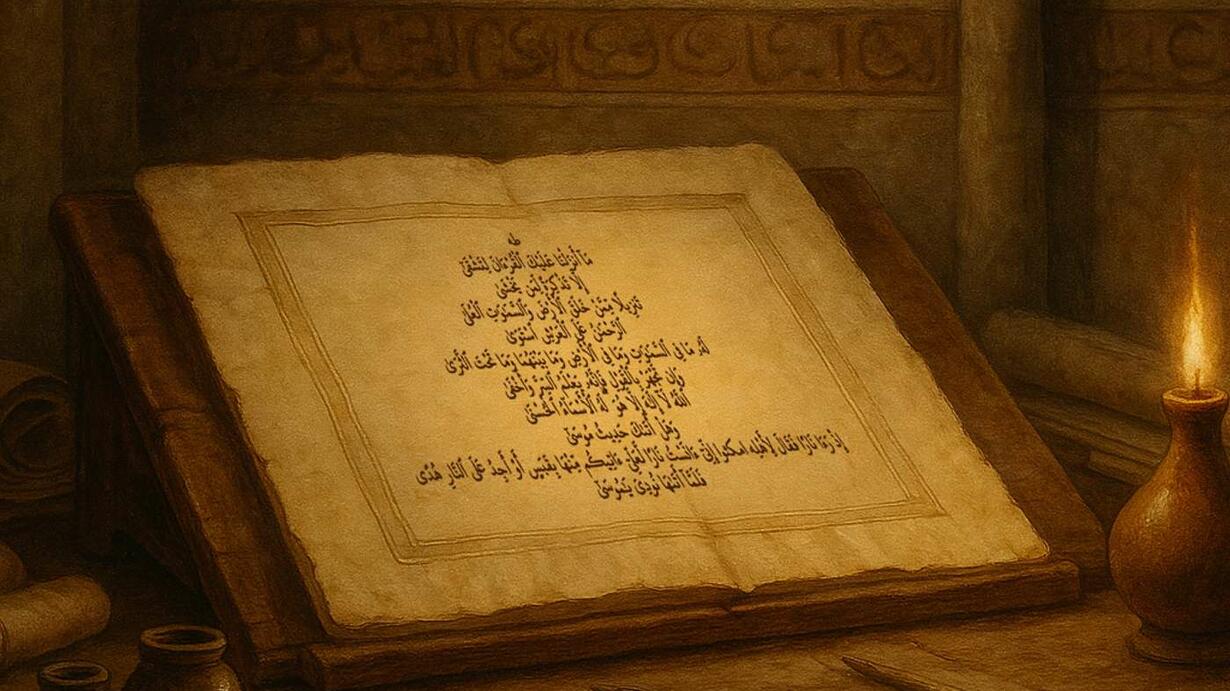 طه
مَا أَنزَلْنَا عَلَيْكَ الْقُرْءَانَ لِتَشْقَىٰ
إِلَّا تَذْكِرَةً لِّمَن يَخْشَىٰ
تَنزِيلًا مِّمَّنْ خَلَقَ الْأَرْضَ وَالسَّمَٰوَٰتِ الْعُلَى
الرَّحْمَٰنُ عَلَى الْعَرْشِ اسْتَوَىٰ
لَهُ مَا فِي السَّمَٰوَٰتِ وَمَا فِي الْأَرْضِ وَمَا بَيْنَهُمَا وَمَا تَحْتَ الثَّرَىٰ
وَإِن تَجْهَرْ بِالْقَوْلِ فَإِنَّهُ يَعْلَمُ السِّرَّ وَأَخْفَى
اللَّهُ لَا إِلَٰهَ إِلَّا هُوَ لَهُ الْأَسْمَاءُ الْحُسْنَىٰ
وَهَلْ أَتَىٰكَ حَدِيثُ مُوسَىٰ
إِذْ رَءَا نَارًا فَقَالَ لِأَهْلِهِ امْكُثُوا إِنِّي ءَانَسْتُ نَارًا لَّعَلِّي ءَاتِيكُم مِّنْهَا بِقَبَسٍ أَوْ أَجِدُ عَلَى النَّارِ هُدًى
فَلَمَّا أَتَىٰهَا نُودِيَ يَٰمُوسَىٰ